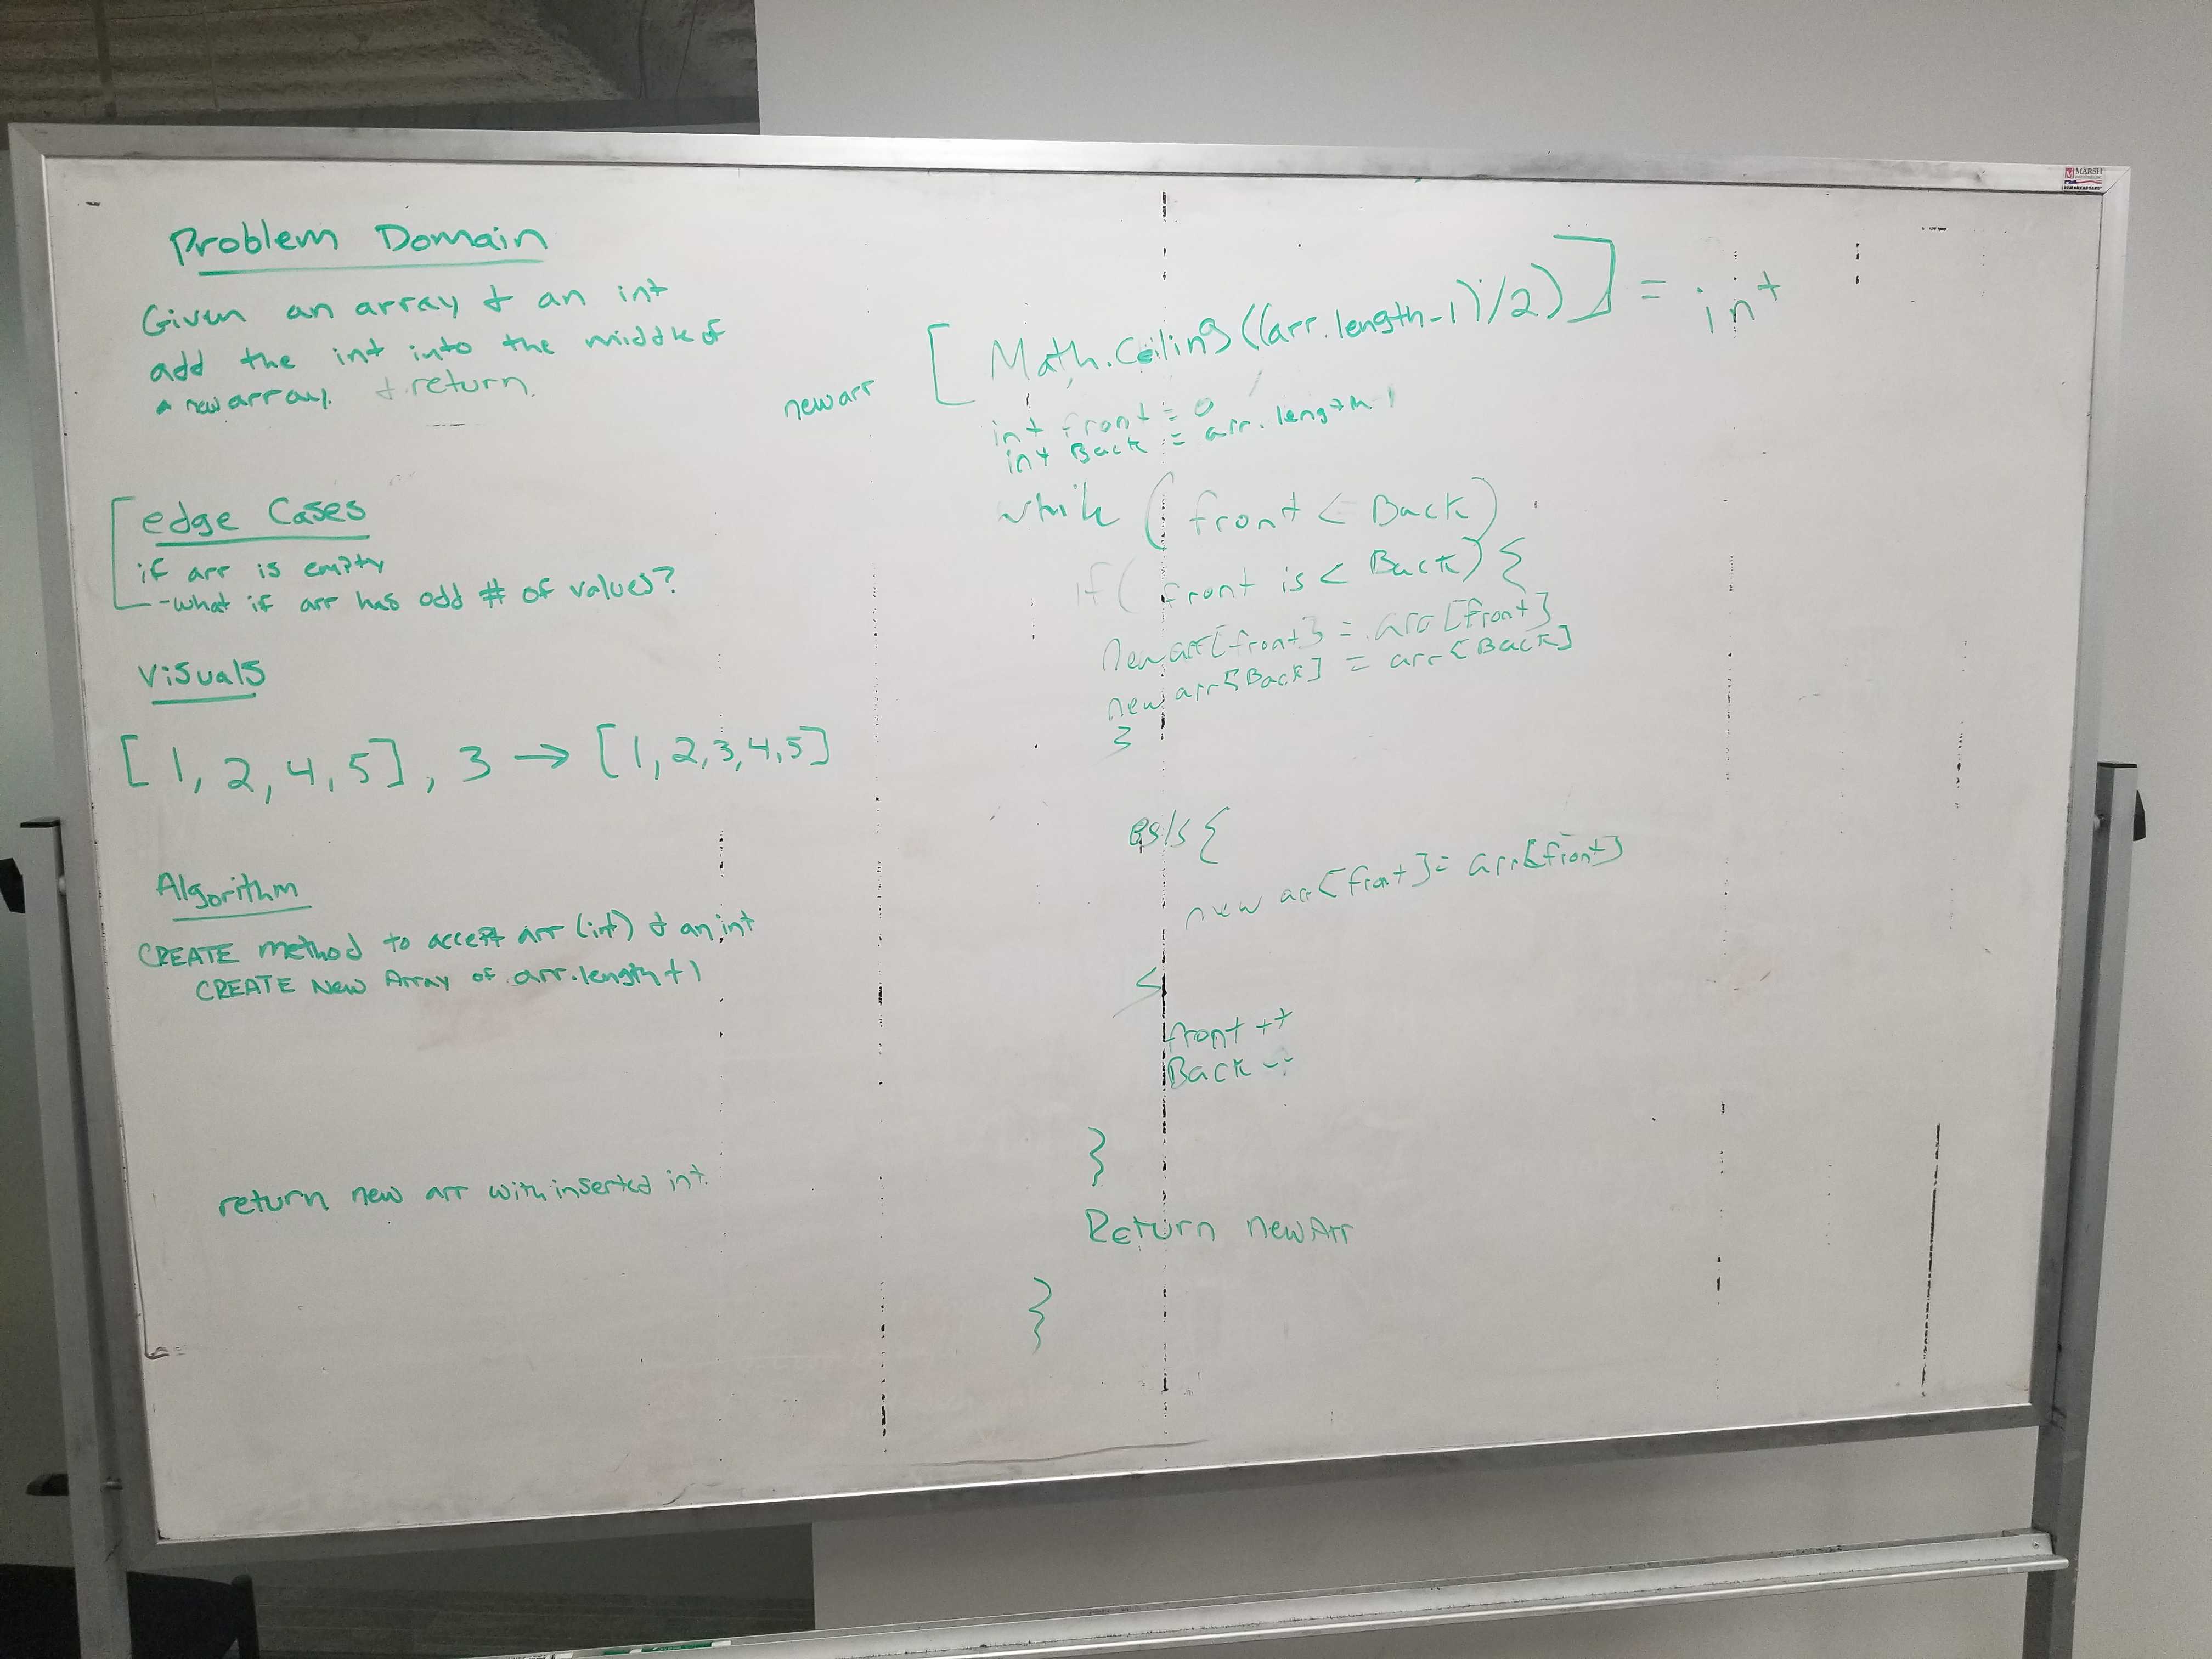 Problem Domain
Given an array & an int
add the int into the middle of
a new array. & return.
edge Cases
if arr is empty
-what if arr has odd # of values?
Visuals
[1, 2, 4, 5], 3 → [1, 2, 3, 4, 5]
Algorithm
CREATE method to accept arr (int) & an int
CREATE New Array of arr.length + 1
return new arr with inserted int.
MARSH
newarr [Math.Ceiling((arr.length-1)/2)] = int
int front = 0
int Back = arr.length
while (front < Back)
if (front is < Back) {
new arr[front] = arr[front]
new arr[Back] = arr[Back]
}
{
new arr[front] = arr[front]
front ++
Back --
}
Return newArr
}